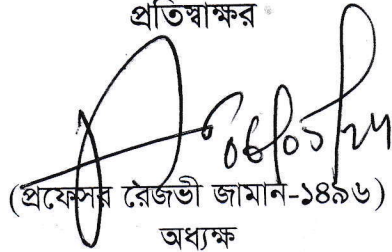 প্রতিস্বাক্ষর
(প্রফেসর রৈজভী জামান-১৪৯৬)
অধ্যক্ষ